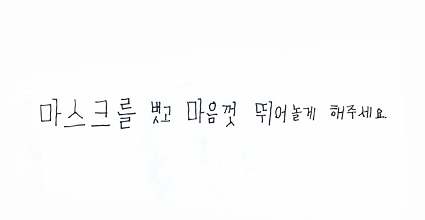 마스크를 벗고 마음껏 뛰어놀게 해주세요